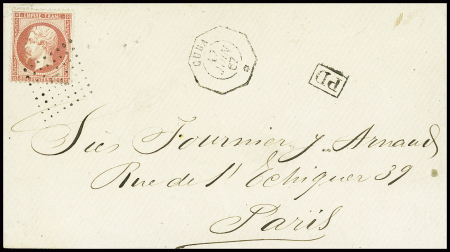 EMPIRE FRANC
CUBA
67
PD
Sres Fournier y Arnaud
Rue de l'Echiquier 39
Paris